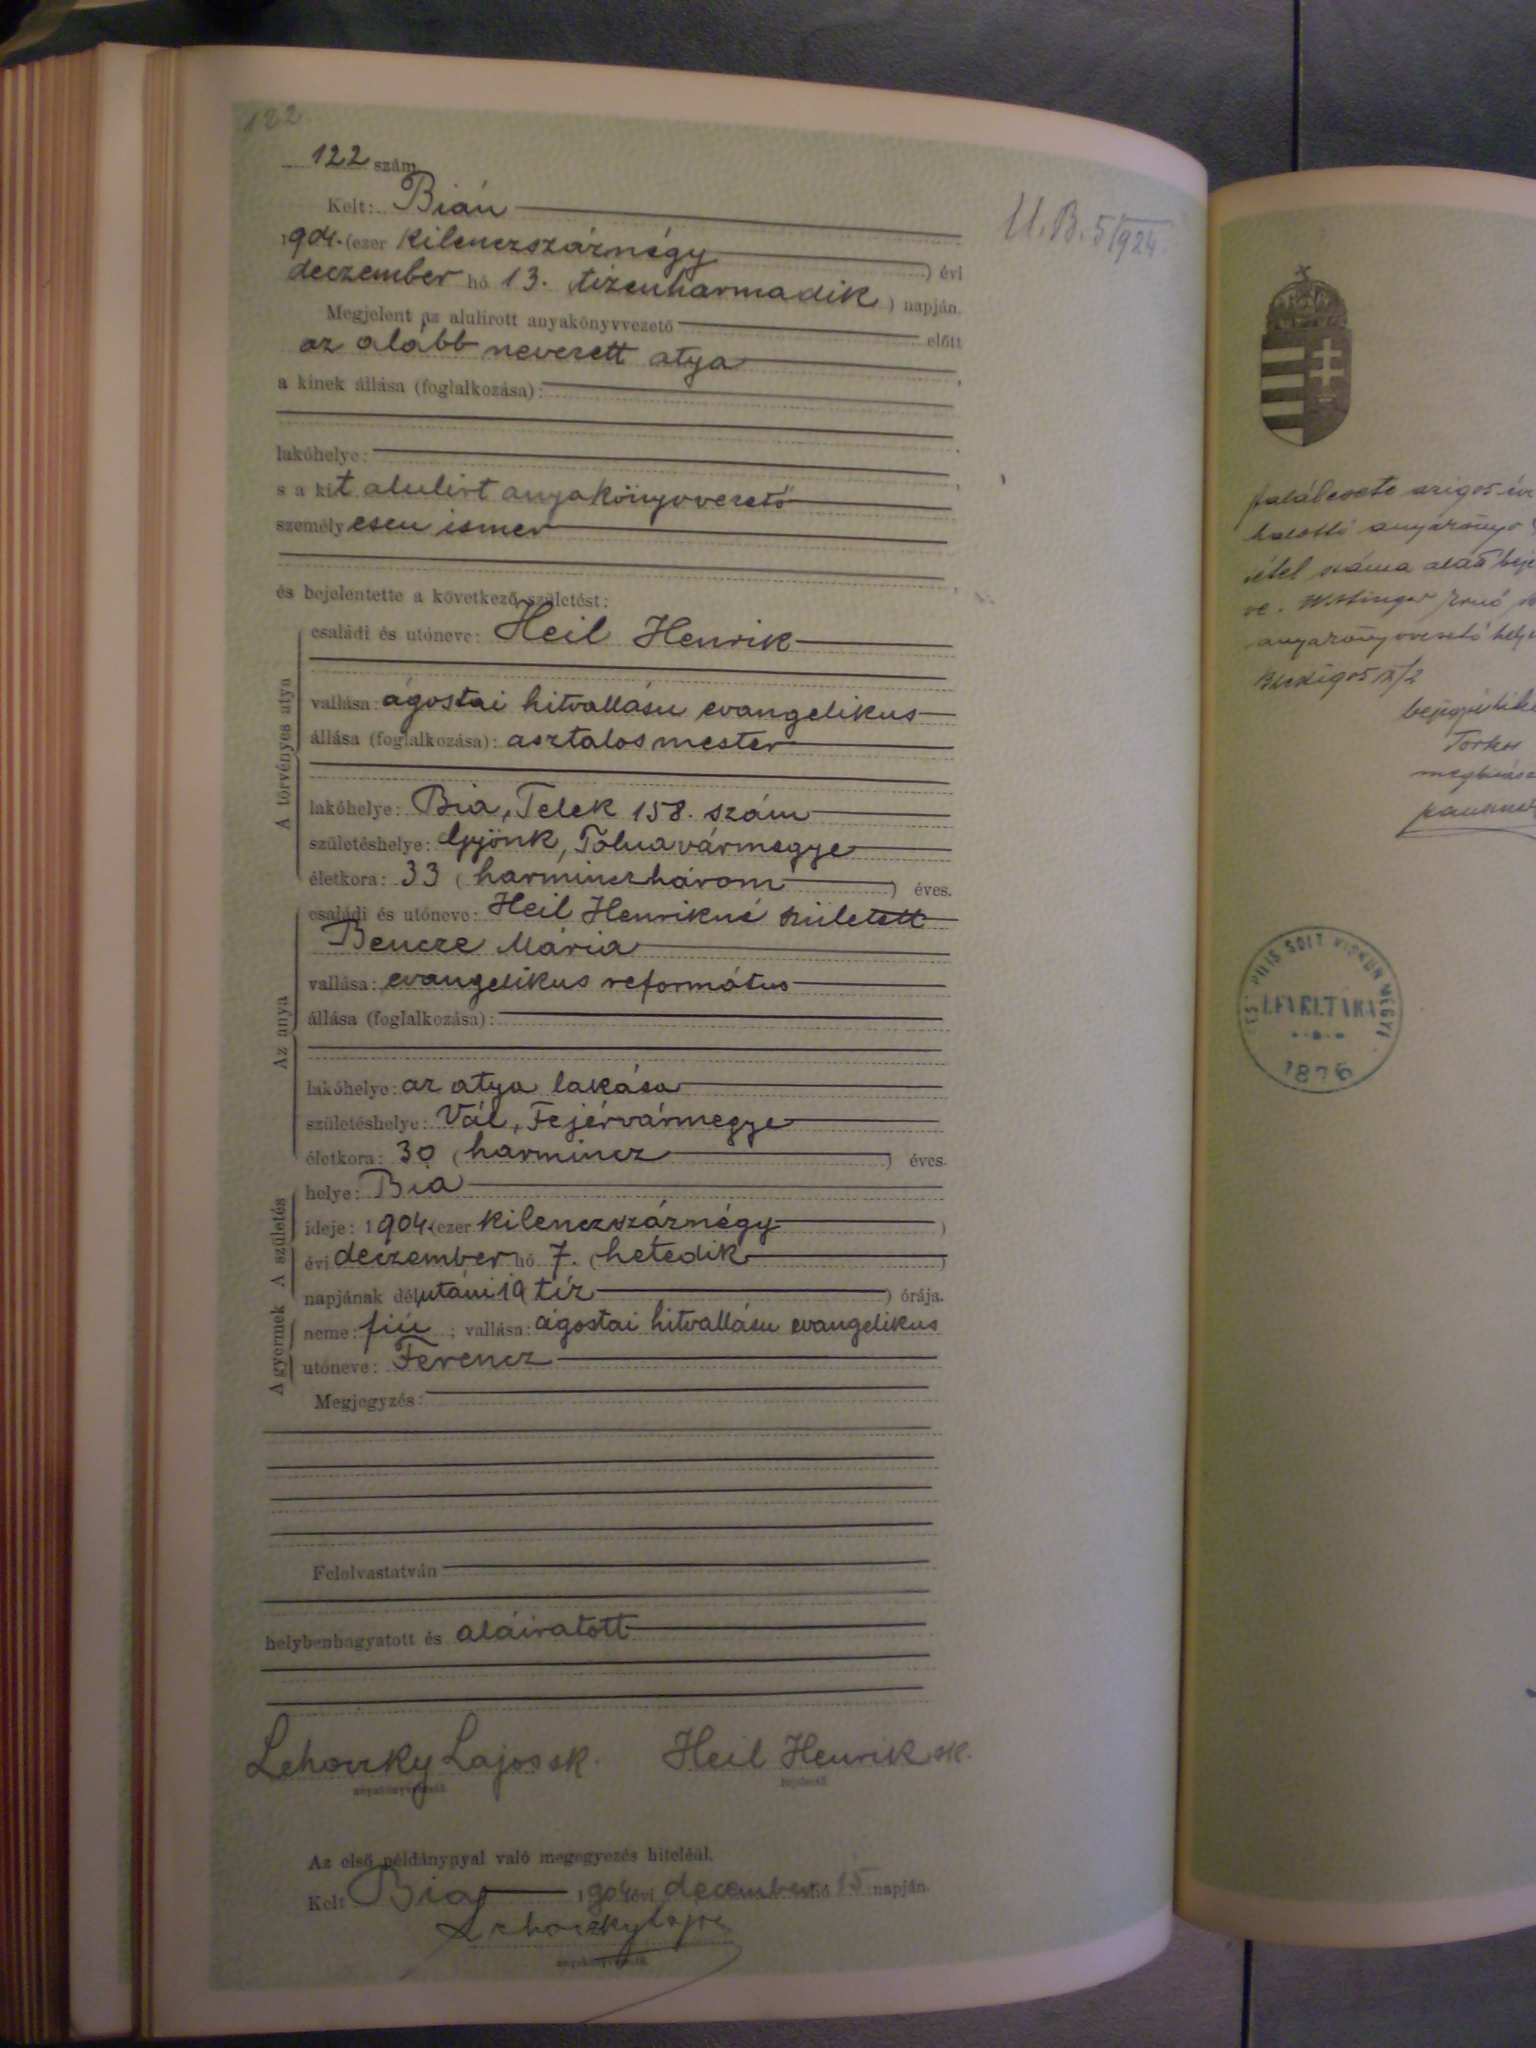 122
122 szám
U. B. 5/924
Kelt: Bián
1904. (ezer kilenczszáznégy ) évi
deczember hó 13. (tizenharmadik ) napján.
Megjelent az alulirott anyakönyvvezető előtt
az alább nevezett atya
a kinek állása (foglalkozása):
lakóhelye:
s a kit alulirt anyakönyvvezető
személyesen ismer
és bejelentette a következő születést:
A törvényes atya
családi és utóneve: Heil Henrik
vallása: ágostai hitvallásu evangelikus
állása (foglalkozása): asztalosmester
lakóhelye: Bia, Telek 158. szám
születéshelye: Gyönk, Tolnavármegye
életkora: 33 (harminczhárom ) éves.
Az anya
családi és utóneve: Heil Henrikné született
Bencze Mária
vallása: evangelikus református
állása (foglalkozása):
lakóhelye: az atya lakása
születéshelye: Vál, Fejérvármegye
életkora: 30 (harmincz ) éves.
A születés
helye: Bia
ideje: 1904. (ezer kilenczszáznégy )
évi deczember hó 7. (hetedik )
napjának délutáni 10 tíz ) órája.
A gyermek
neme: fiú ; vallása: ágostai hitvallásu evangelikus
utóneve: Ferencz
Megjegyzés:
Felolvastatván
helybenhagyatott és aláiratott
Lehoczky Lajos sk. Heil Henrik sk.
anyakönyvvezető. bejelentő.
Az első példánynyal való megegyezés hiteléül.
Kelt Bia 1904 évi december hó 15 napján.
Lehoczky Lajos
anyakönyvvezető.
halotti anyakönyv
tétel száma alatt
Ernő
anyakönyvvezető
Torkos
PILIS SOLT KISKUN MEGYE
LEVÉLTÁRA
1876